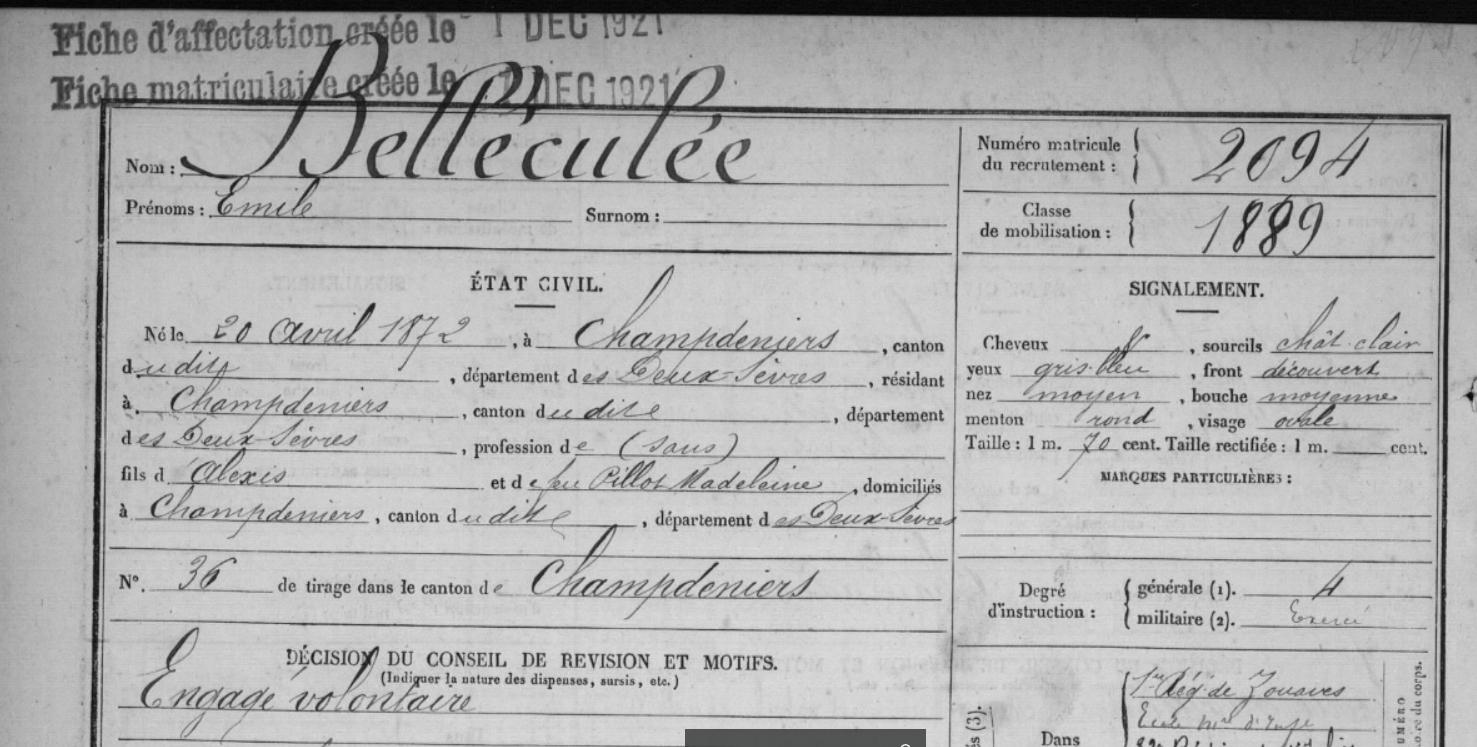 Fiche d'affectation créée le 1 DEC 1921
Fiche matriculaire créée le 1 DEC 1921
Nom : Belléculée
Prénoms : Emile Surnom :
Numéro matricule
du recrutement : 2094
Classe
de mobilisation : 1889
ÉTAT CIVIL.
Né le 20 Avril 1872, à Champdeniers, canton
dudit, département des Deux-Sèvres, résidant
à Champdeniers, canton dudit, département
des Deux-Sèvres, profession de (sans)
fils d Alexis et de feu Pillot Madeleine, domiciliés
à Champdeniers, canton dudit, département des Deux-Sèvres
N°. 36 de tirage dans le canton de Champdeniers
DÉCISION DU CONSEIL DE REVISION ET MOTIFS.
(Indiquer la nature des dispenses, sursis, etc.)
Engagé volontaire
SIGNALEMENT.
Cheveux, sourcils chât clair
yeux gris-bleu, front découvert
nez moyen, bouche moyenne
menton rond, visage ovale
Taille : 1 m. 70 cent. Taille rectifiée : 1 m. cent.
MARQUES PARTICULIÈRES :
Degré
d'instruction :
générale (1). 4
militaire (2). Exercé
1er Rég. de Zouaves
Dans
(3).
NUMÉRO